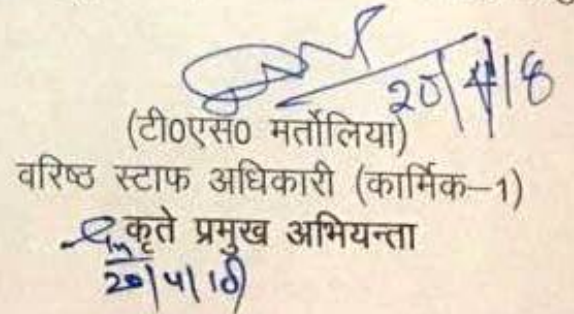 20/4/18
(टी0एस0 मर्तोलिया)
वरिष्ठ स्टाफ अधिकारी (कार्मिक–1)
कृते प्रमुख अभियन्ता
20/4/18